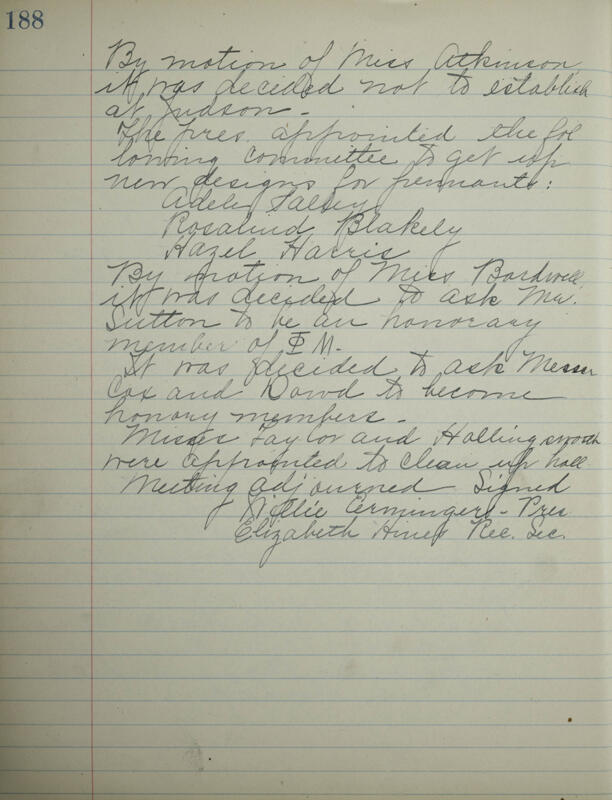 188
By motion of Miss Atkinson
it was decided not to establish
at Judson -
The pres. appointed the fol
lowing committee to get up
new designs for pennants:
Adele Salley
Rosalind Blakely
Hazel Harris
By motion of Miss Bardwell
it was decided to ask Mr.
Sutton to be an honorary
member of Φ M.
It was decided to ask Messer
Cox and Dowd to become
honary members -
Misses Taylor and Hollingsworth
were appointed to clean up hall
Meeting adjourned Signed
- Pres
Elizabeth Hines Rec. Sec.